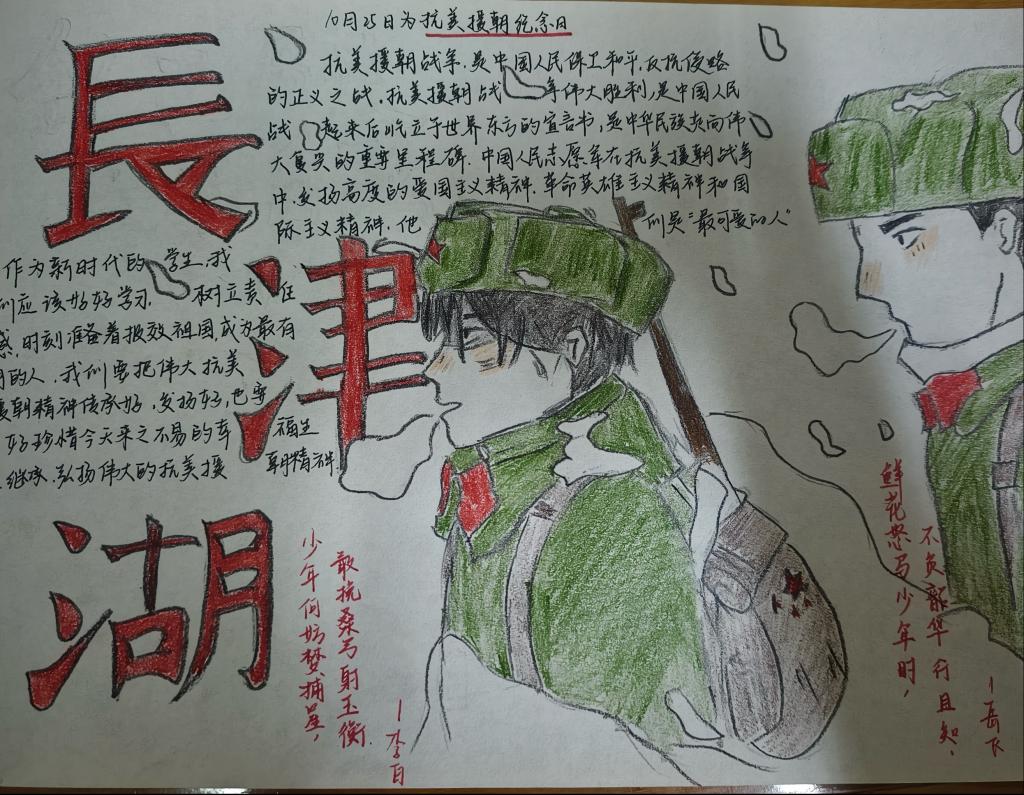 10月25日为抗美援朝纪念日
抗美援朝战争,是中国人民保卫和平,反抗侵略
的正义之战,抗美援朝战争伟大胜利,是中国人民
战起来后屹立于世界东方的宣言书,是中华民族走向伟
大复兴的重要里程碑.中国人民志愿军在抗美援朝战争
中,发扬高度的爱国主义精神.革命英雄主义精神和国
际主义精神.他们是“最可爱的人”
長
津
湖
作为新时代的学生,我
们应该好好学习.树立责任
感,时刻准备着报效祖国,成为最有
用的人.我们要把伟大抗美
援朝精神传承好,发扬好,也要
好珍惜今天来之不易的幸福生
继承.弘扬伟大的抗美援朝精神.
少年何妨梦摘星,
敢挽桑弓射玉衡.
—李白
鲜花怒马少年时,
不负韶华行且知,
—岳飞